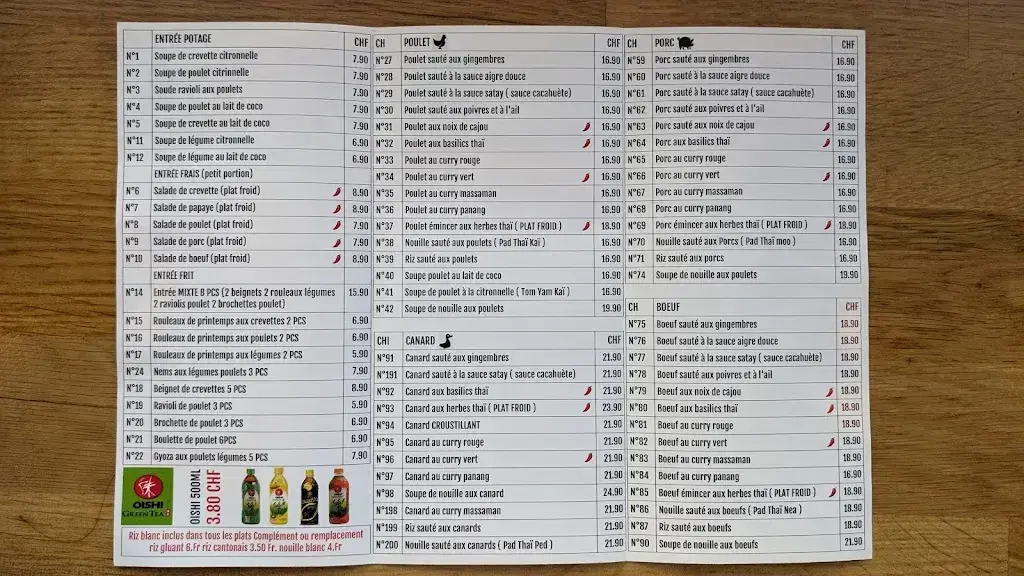 ENTRÉE POTAGE CHF
N°1 Soupe de crevette citronnelle 7.90
N°2 Soupe de poulet citrinnelle 7.90
N°3 Soude ravioli aux poulets 7.90
N°4 Soupe de poulet au lait de coco 7.90
N°5 Soupe de crevette au lait de coco 7.90
N°11 Soupe de légume citronnelle 6.90
N°12 Soupe de légume au lait de coco 6.90
ENTRÉE FRAIS (petit portion)
N°6 Salade de crevette (plat froid) 8.90
N°7 Salade de papaye (plat froid) 8.90
N°8 Salade de poulet (plat froid) 7.90
N°9 Salade de porc (plat froid) 7.90
N°10 Salade de boeuf (plat froid) 8.90
ENTRÉE FRIT
N°14 Entrée MIXTE 8 PCS (2 beignets 2 rouleaux légumes 15.90
2 raviolis poulet 2 brochettes poulet)
N°15 Rouleaux de printemps aux crevettes 2 PCS 6.90
N°16 Rouleaux de printemps aux poulets 2 PCS 6.90
N°17 Rouleaux de printemps aux légumes 2 PCS 5.90
N°24 Nems aux légumes poulets 3 PCS 7.90
N°18 Beignet de crevettes 5 PCS 8.90
N°19 Ravioli de poulet 3 PCS 5.90
N°20 Brochette de poulet 3 PCS 6.90
N°21 Boulette de poulet 6PCS 6.90
N°22 Gyoza aux poulets légumes 5 PCS 7.90
OISHI
GREEN TEA
OISHI 500ML
3.80 CHF
Riz blanc inclus dans tous les plats Complément ou remplacement
riz gluant 6.Fr riz cantonais 3.50 Fr. nouille blanc 4.Fr
CH POULET CHF
N°27 Poulet sauté aux gingembres 16.90
N°28 Poulet sauté à la sauce aigre douce 16.90
N°29 Poulet sauté à la sauce satay ( sauce cacahuète) 16.90
N°30 Poulet sauté aux poivres et à l'ail 16.90
N°31 Poulet aux noix de cajou 16.90
N°32 Poulet aux basilics thaï 16.90
N°33 Poulet au curry rouge 16.90
N°34 Poulet au curry vert 16.90
N°35 Poulet au curry massaman 16.90
N°36 Poulet au curry panang 16.90
N°37 Poulet émincer aux herbes thaï ( PLAT FROID ) 18.90
N°38 Nouille sauté aux poulets ( Pad Thaï Kaï ) 16.90
N°39 Riz sauté aux poulets 16.90
N°40 Soupe poulet au lait de coco 16.90
N°41 Soupe de poulet à la citronnelle ( Tom Yam Kaï ) 16.90
N°42 Soupe de nouille aux poulets 19.90
CHI CANARD CHF
N°91 Canard sauté aux gingembres 21.90
N°191 Canard sauté à la sauce satay ( sauce cacahuète) 21.90
N°92 Canard aux basilics thaï 21.90
N°93 Canard aux herbes thaï ( PLAT FROID ) 23.90
N°94 Canard CROUSTILLANT 21.90
N°95 Canard au curry rouge 21.90
N°96 Canard au curry vert 21.90
N°97 Canard au curry panang 21.90
N°98 Soupe de nouille aux canard 24.90
N°198 Canard au curry massaman 21.90
N°199 Riz sauté aux canards 21.90
N°200 Nouille sauté aux canards ( Pad Thaï Ped ) 21.90
CH PORC CHF
N°59 Porc sauté aux gingembres 16.90
N°60 Porc sauté à la sauce aigre douce 16.90
N°61 Porc sauté à la sauce satay ( sauce cacahuète) 16.90
N°62 Porc sauté aux poivres et à l'ail 16.90
N°63 Porc sauté aux noix de cajou 16.90
N°64 Porc aux basilics thaï 16.90
N°65 Porc au curry rouge 16.90
N°66 Porc au curry vert 16.90
N°67 Porc au curry massaman 16.90
N°68 Porc au curry panang 16.90
N°69 Porc émincer aux herbes thaï ( PLAT FROID ) 18.90
N°70 Nouille sauté aux Porcs ( Pad Thaï moo ) 16.90
N°71 Riz sauté aux porcs 16.90
N°74 Soupe de nouille aux poulets 19.90
CH BOEUF CHF
N°75 Boeuf sauté aux gingembres 18.90
N°76 Boeuf sauté à la sauce aigre douce 18.90
N°77 Boeuf sauté à la sauce satay ( sauce cacahuète) 18.90
N°78 Boeuf sauté aux poivres et à l'ail 18.90
N°79 Boeuf aux noix de cajou 18.90
N°80 Boeuf aux basilics thaï 18.90
N°81 Boeuf au curry rouge 18.90
N°82 Boeuf au curry vert 18.90
N°83 Boeuf au curry massaman 18.90
N°84 Boeuf au curry panang 16.90
N°85 Boeuf émincer aux herbes thaï ( PLAT FROID ) 18.90
N°86 Nouille sauté aux boeufs ( Pad Thaï Nea ) 18.90
N°87 Riz sauté aux boeufs 18.90
N°90 Soupe de nouille aux boeufs 21.90